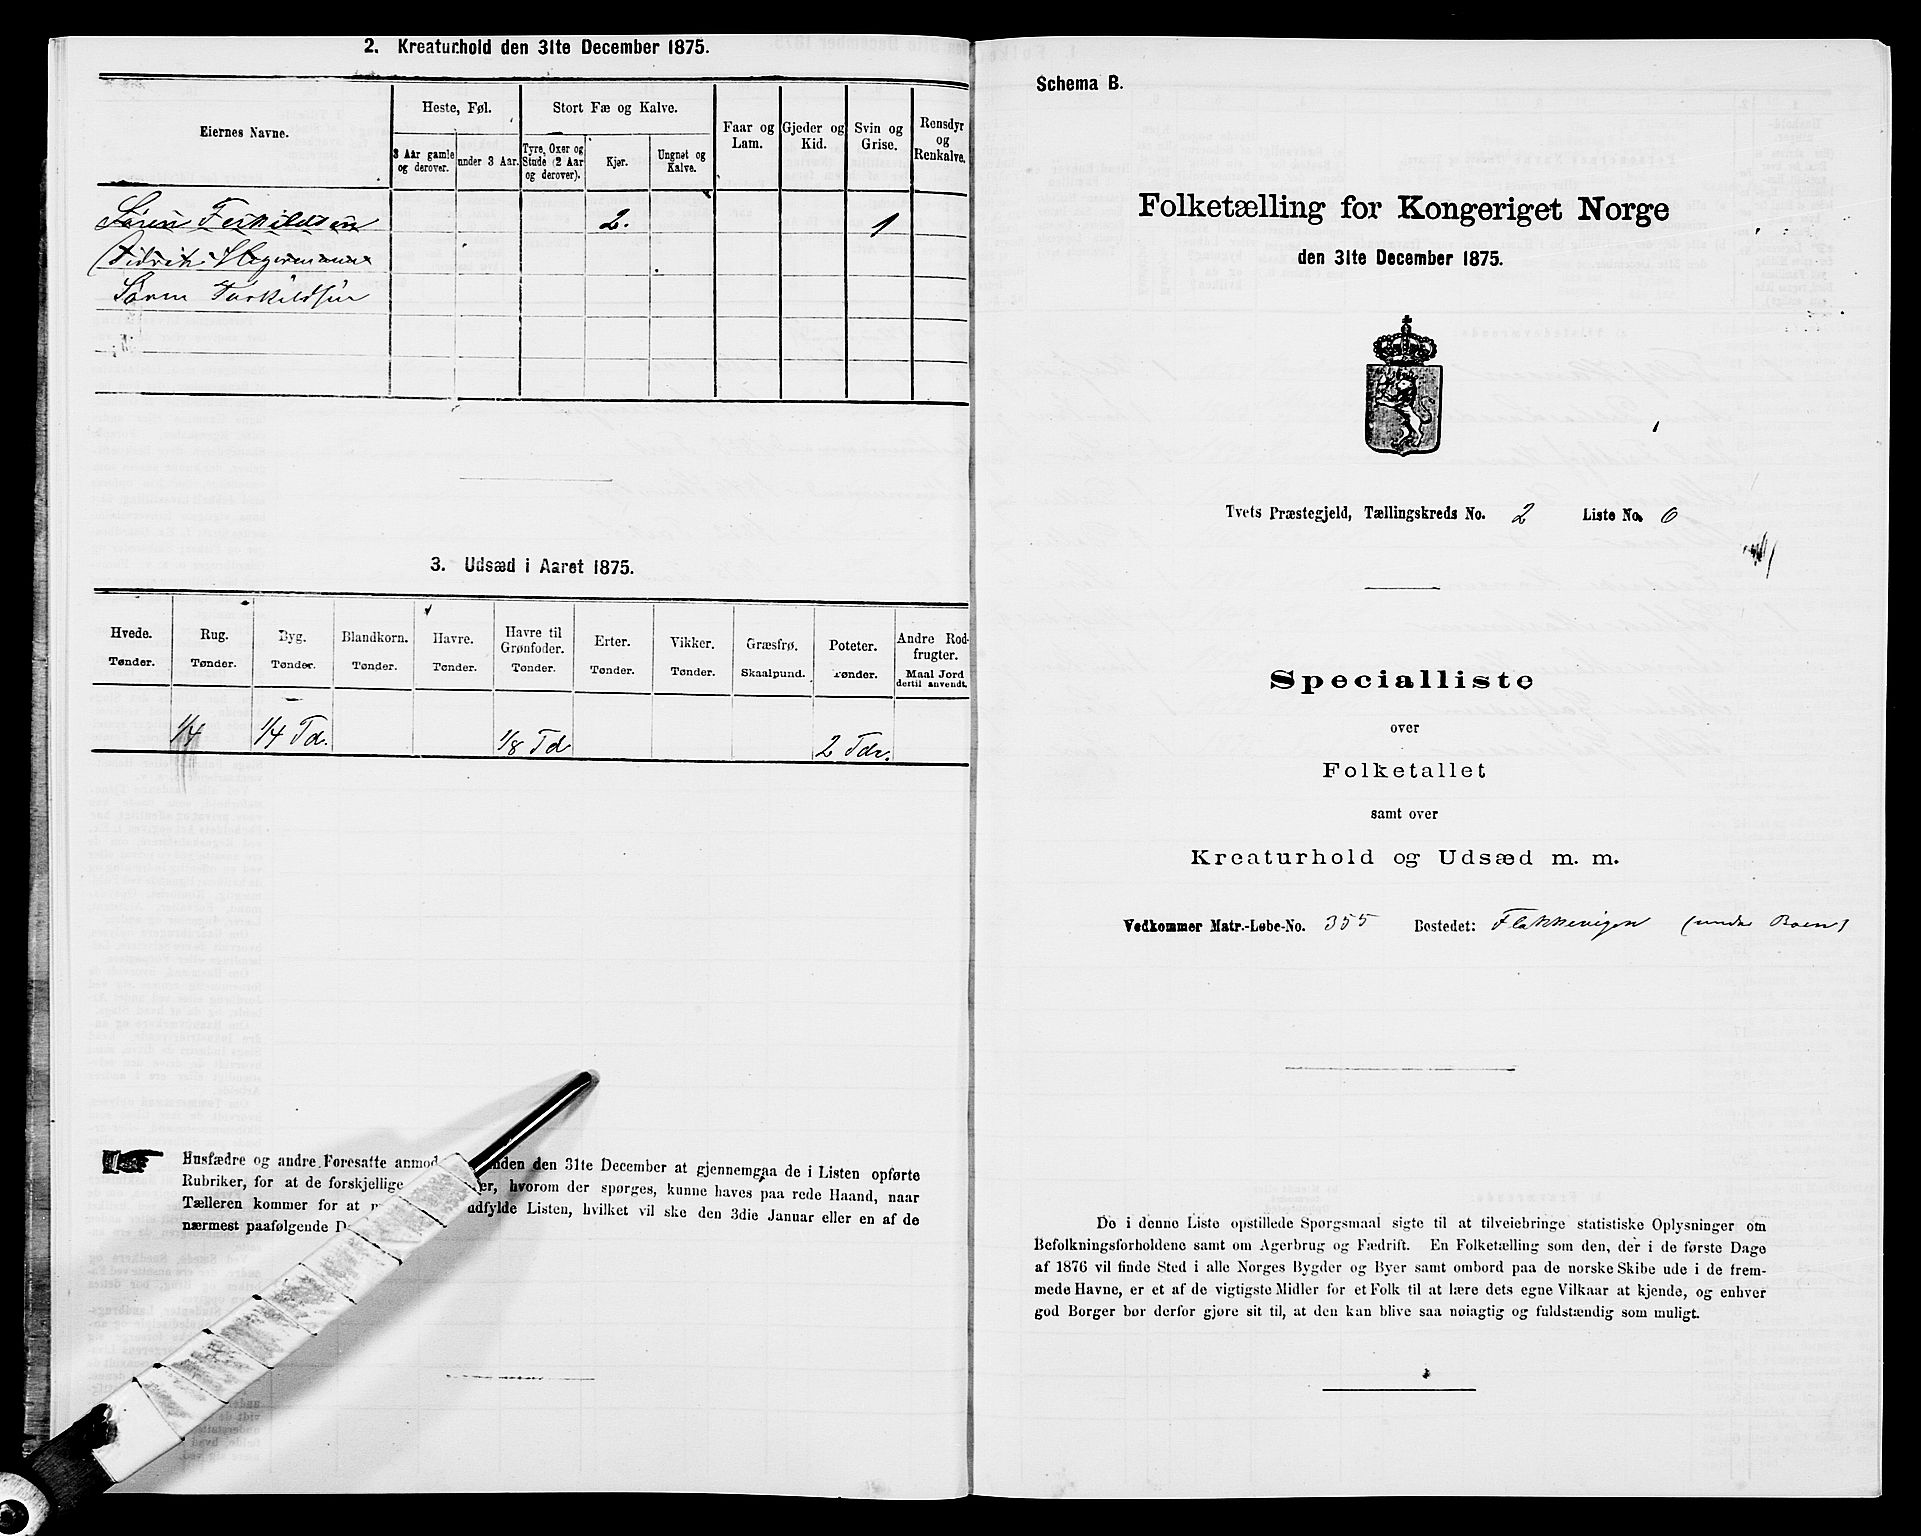 2. Kreaturhold den 31te December 1875.
Eiernes Navne.
Heste, Føl.
Stort Fæ og Kalve.
Faar og Lam.
Gjeder og Kid.
Svin og Grise.
Rensdyr og Renkalve.
3 Aar gamle og derover.
under 3 Aar.
Tyre, Oxer og Stude (2 Aar og derover).
Kjør.
Ungnøt og Kalve.
Søren Terkildsen 2. 1
Didrik Hegermann
Søren Tarkildsen
3. Udsæd i Aaret 1875.
Hvede. Tønder.
Rug. Tønder.
Byg. Tønder.
Blandkorn. Tønder.
Havre. Tønder.
Havre til Grønfoder. Tønder.
Erter. Tønder.
Vikker. Tønder.
Græsfrø. Skaalpund.
Poteter. Tønder.
Andre Rodfrugter. Maal Jord dertil anvendt.
1/4 1/4 Td. 1/8 Td 2 Tdr.
Husfædre og andre Foresatte anmod inden den 31te December at gjennemgaa de i Listen opførte
Rubriker, for at de forskjellige er, hvorom der spørges, kunne haves paa rede Haand, naar
Tælleren kommer for at udfylde Listen, hvilket vil ske den 3die Januar eller en af de
nærmest paafølgende D
Schema B.
Folketælling for Kongeriget Norge
den 31te December 1875.
Tvets Præstegjeld, Tællingskreds No. 2 Liste No. 6
Specialliste
over
Folketallet
samt over
Kreaturhold og Udsæd m. m.
Vedkommer Matr.-Løbe-No. 355 Bostedet: Flakkevigen (under Boen)
De i denne Liste opstillede Spørgsmaal sigte til at tilveiebringe statistiske Oplysninger om
Befolkningsforholdene samt om Agerbrug og Fædrift. En Folketælling som den, der i de første Dage
af 1876 vil finde Sted i alle Norges Bygder og Byer samt ombord paa de norske Skibe ude i de frem-
mede Havne, er et af de vigtigste Midler for et Folk til at lære dets egne Vilkaar at kjende, og enhver
god Borger bør derfor gjøre sit til, at den kan blive saa nøiagtig og fuldstændig som muligt.